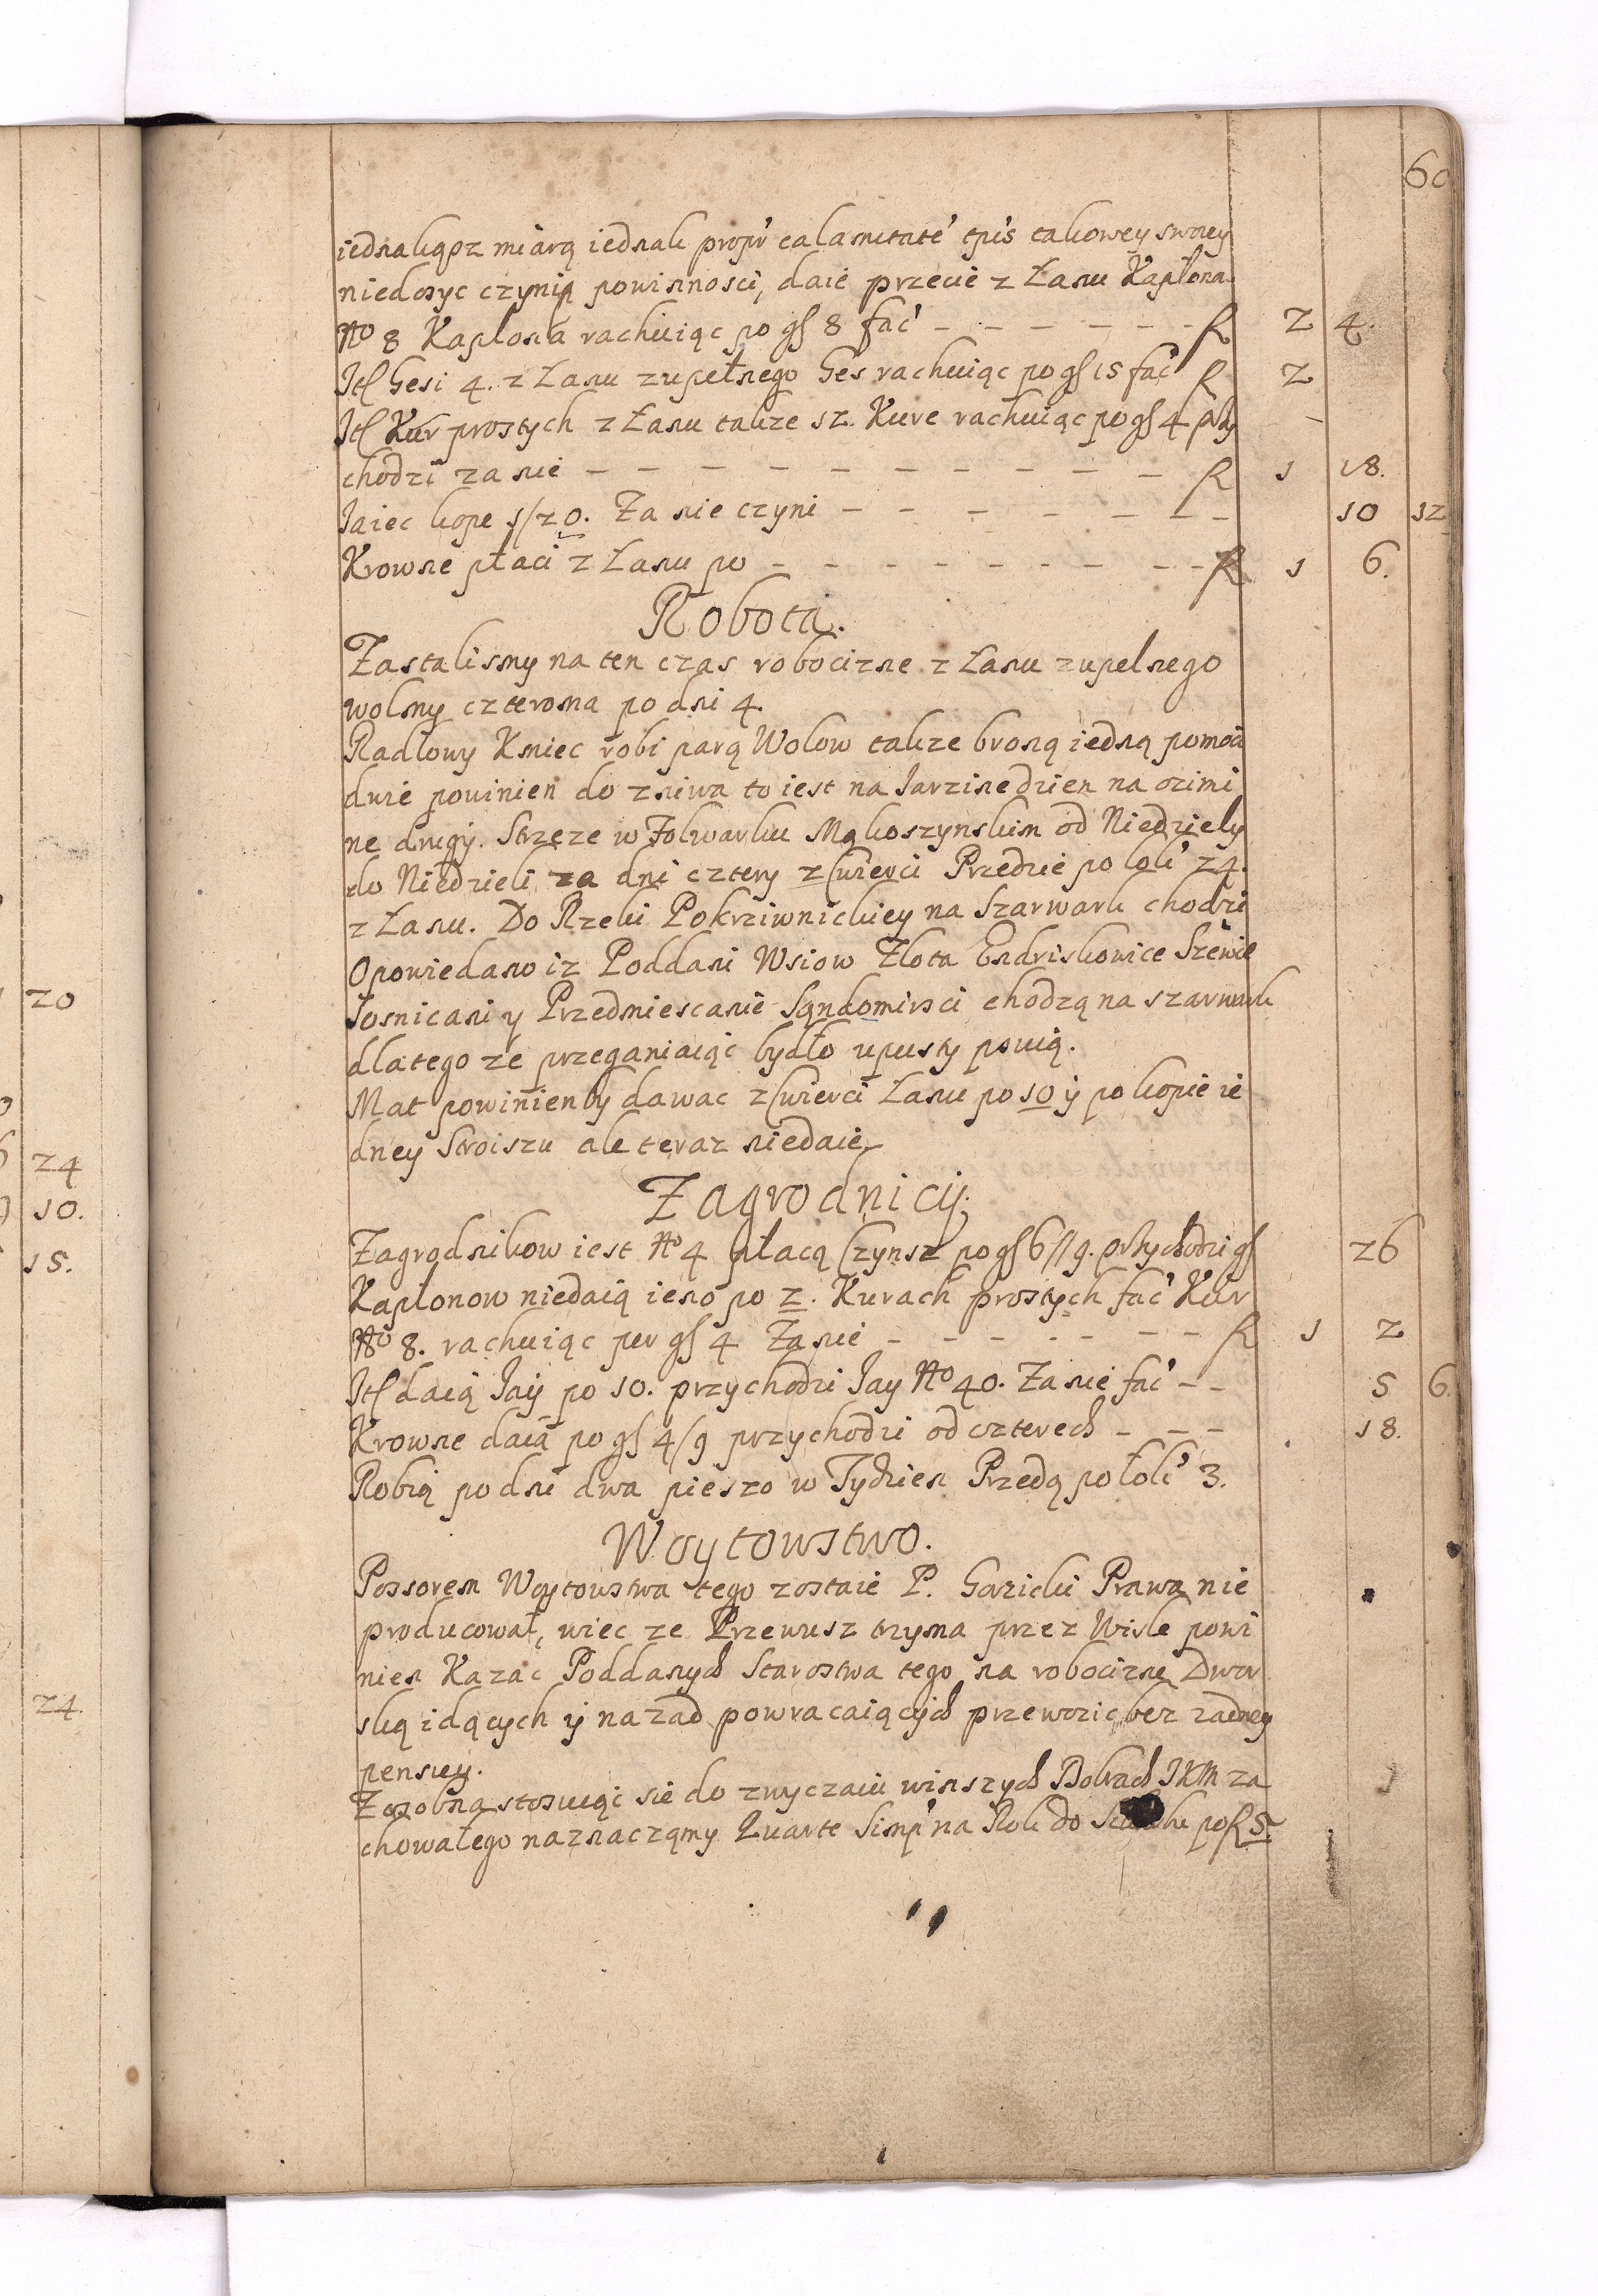 60
iednakąsz miarą iednak propr calamitate tpis takowey swoiey
niedosyc czynią powinnosci, daie przecie z Łanu Kapłona
No 8 Kapłona rachuiąc po gſ 8 fać – – – – – – – ƒ 2 4.
Itſ Gesi 4. z Łanu zupełnego Ges rachuiąc po gſ 15 fać ƒ 2
Itſ Kur prostych z Łanu takze 12. Kure rachuiąc po gſ 4 przy
chodzi za nie – – – – – – – – – – ƒ 1 18.
Jaiec kope 1/20. Za nie czyni – – – – – – – 10 12
Krowne płaci z Łanu po – – – – – – – – ƒ 1 6.
Robota.
Zastalismy na ten czas robocizne z Łanu zupelnego
wolmy czterema po dni 4.
Radlowy Kmiec robi parą Wolow takze broną iedną pomoci
dwie powinien do zniwa to iest na Jarzine dzien na ozimi
ne drugy. Strzeze w Folwarku Mąkoszynskim od Niedziely
do Niedzieli za dni cztery z Cwierci Przedzie po łoki 24.
z Łanu. Do Rzeki Pokrziwnickiey na Szarwark chodzi
Opowiedano iz Poddani Wsiow Zlota Endriskowice Szewce
Sosnicani y Przedmiescanie Sąndomirsci chodzą na szarwark
dlatego ze przeganiaiąc bydło upusty psuią.
Mat powinienby dawac z Cwierci Łanu po 10 y po kopie ie
dney Stroiszu ale teraz niedaie
Zagrodnicy.
Zagrodnikow iest No 4 płacą Czynsz po gſ 6//9. przychodzi gſ 26
Kapłonow niedaią ieno po 2. Kurach prostych fać Kur
No 8. rachuiąc per gſ 4 Za nie – – – – – – – ƒ 1 2
Itſ daią Jay po 10. przychodzi Jay No 40. Za nie fać – – 5 6
Krowne daią po gſ 4/9 przychodzi od czterech – – – 18.
Robią po dni dwa pieszo w Tydzien Przedą po łoki 3.
Woytowstwo.
Possorem Woytowstwa tego zostaie P. Gozicki Prawa nie
producował, wiec ze Przewusz trzyma przez Wisle powi
nien Kazac Poddanych Starostwa tego na robociznę Dwor
ską idących y nazad powracaiących przewozic bez zadney
pensyey.
Zosobna stosuiąc sie do zwyczaiu winszych Dobrach JKM za
chowałego naznaczamy Quarte Simp na Rok do po ƒ 5
20
24
10.
15.
24.